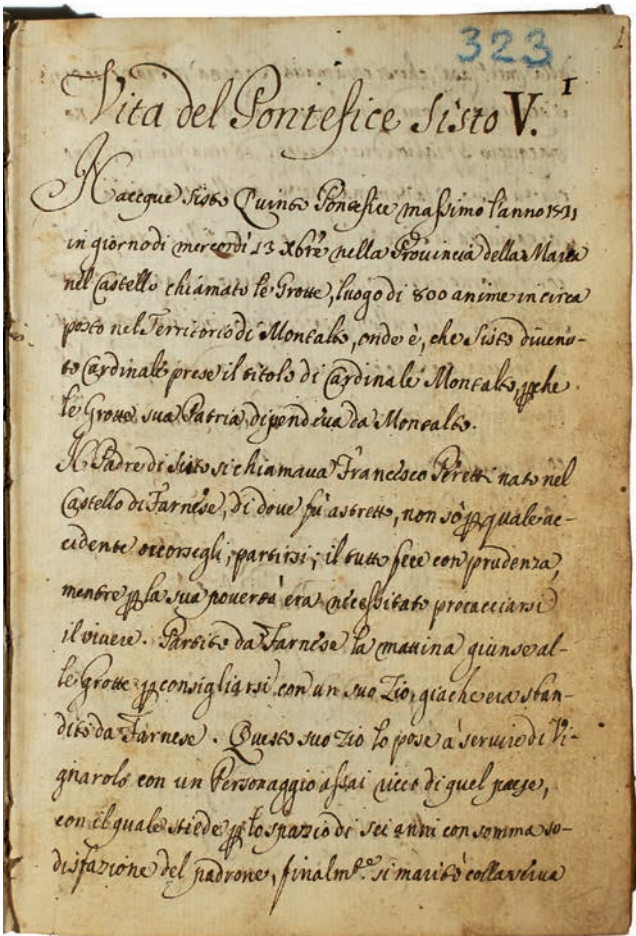 323
1
Vita del Pontefice Sisto V.
Nacque Sisto Quinto Pontefice massimo l'anno 1521
in giorno di mercordì 13 Xbre nella Provincia della Marca
nel Castello chiamato le Grotte, luogo di 800 anime in circa
posto nel Territorio di Montalto, onde è, che Sisto divenu-
to Cardinale prese il titolo di Cardinale Montalto, pche
le Grotte sua Patria dipendeva da Montalto.
Il Padre di Sisto si chiamava Francesco Peretti nato nel
Castello di Farnese, di dove fù astretto, non sò p quale ac-
cidente occorsegli, partirsi; il tutto fece con prudenza,
mentre p la sua povertà era necessitato procacciarsi
il vivere. Partito da Farnese la mattina giunse al-
le Grotte p consigliarsi con un suo Zio, giache era sban-
dito da Farnese. Questo suo zio lo pose à servire di Vi-
gnarolo con un Personaggio assai ricco di quel paese,
con il quale stiede p lo spazio di sei anni con somma so-
disfazione del padrone, finalm.te si maritò colla serva